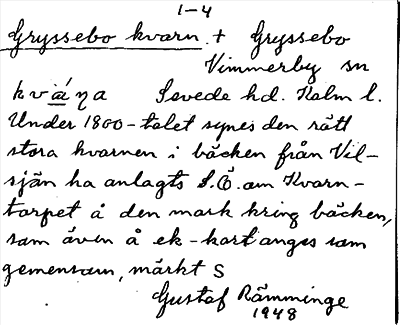 1-4
Gryssebo kvarn + Gryssebo
Vimmerby sn
kvàṇa Sevede hd. Kalm l.
Under 1800-talet synes den rätt
stora kvarnen i bäcken från Vil-
sjön ha anlagts S.Ö. om Kvarn-
torpet å den mark kring bäcken,
som även å ek-kart anges som
gemensam, märkt S
Gustaf Rämminge
1948